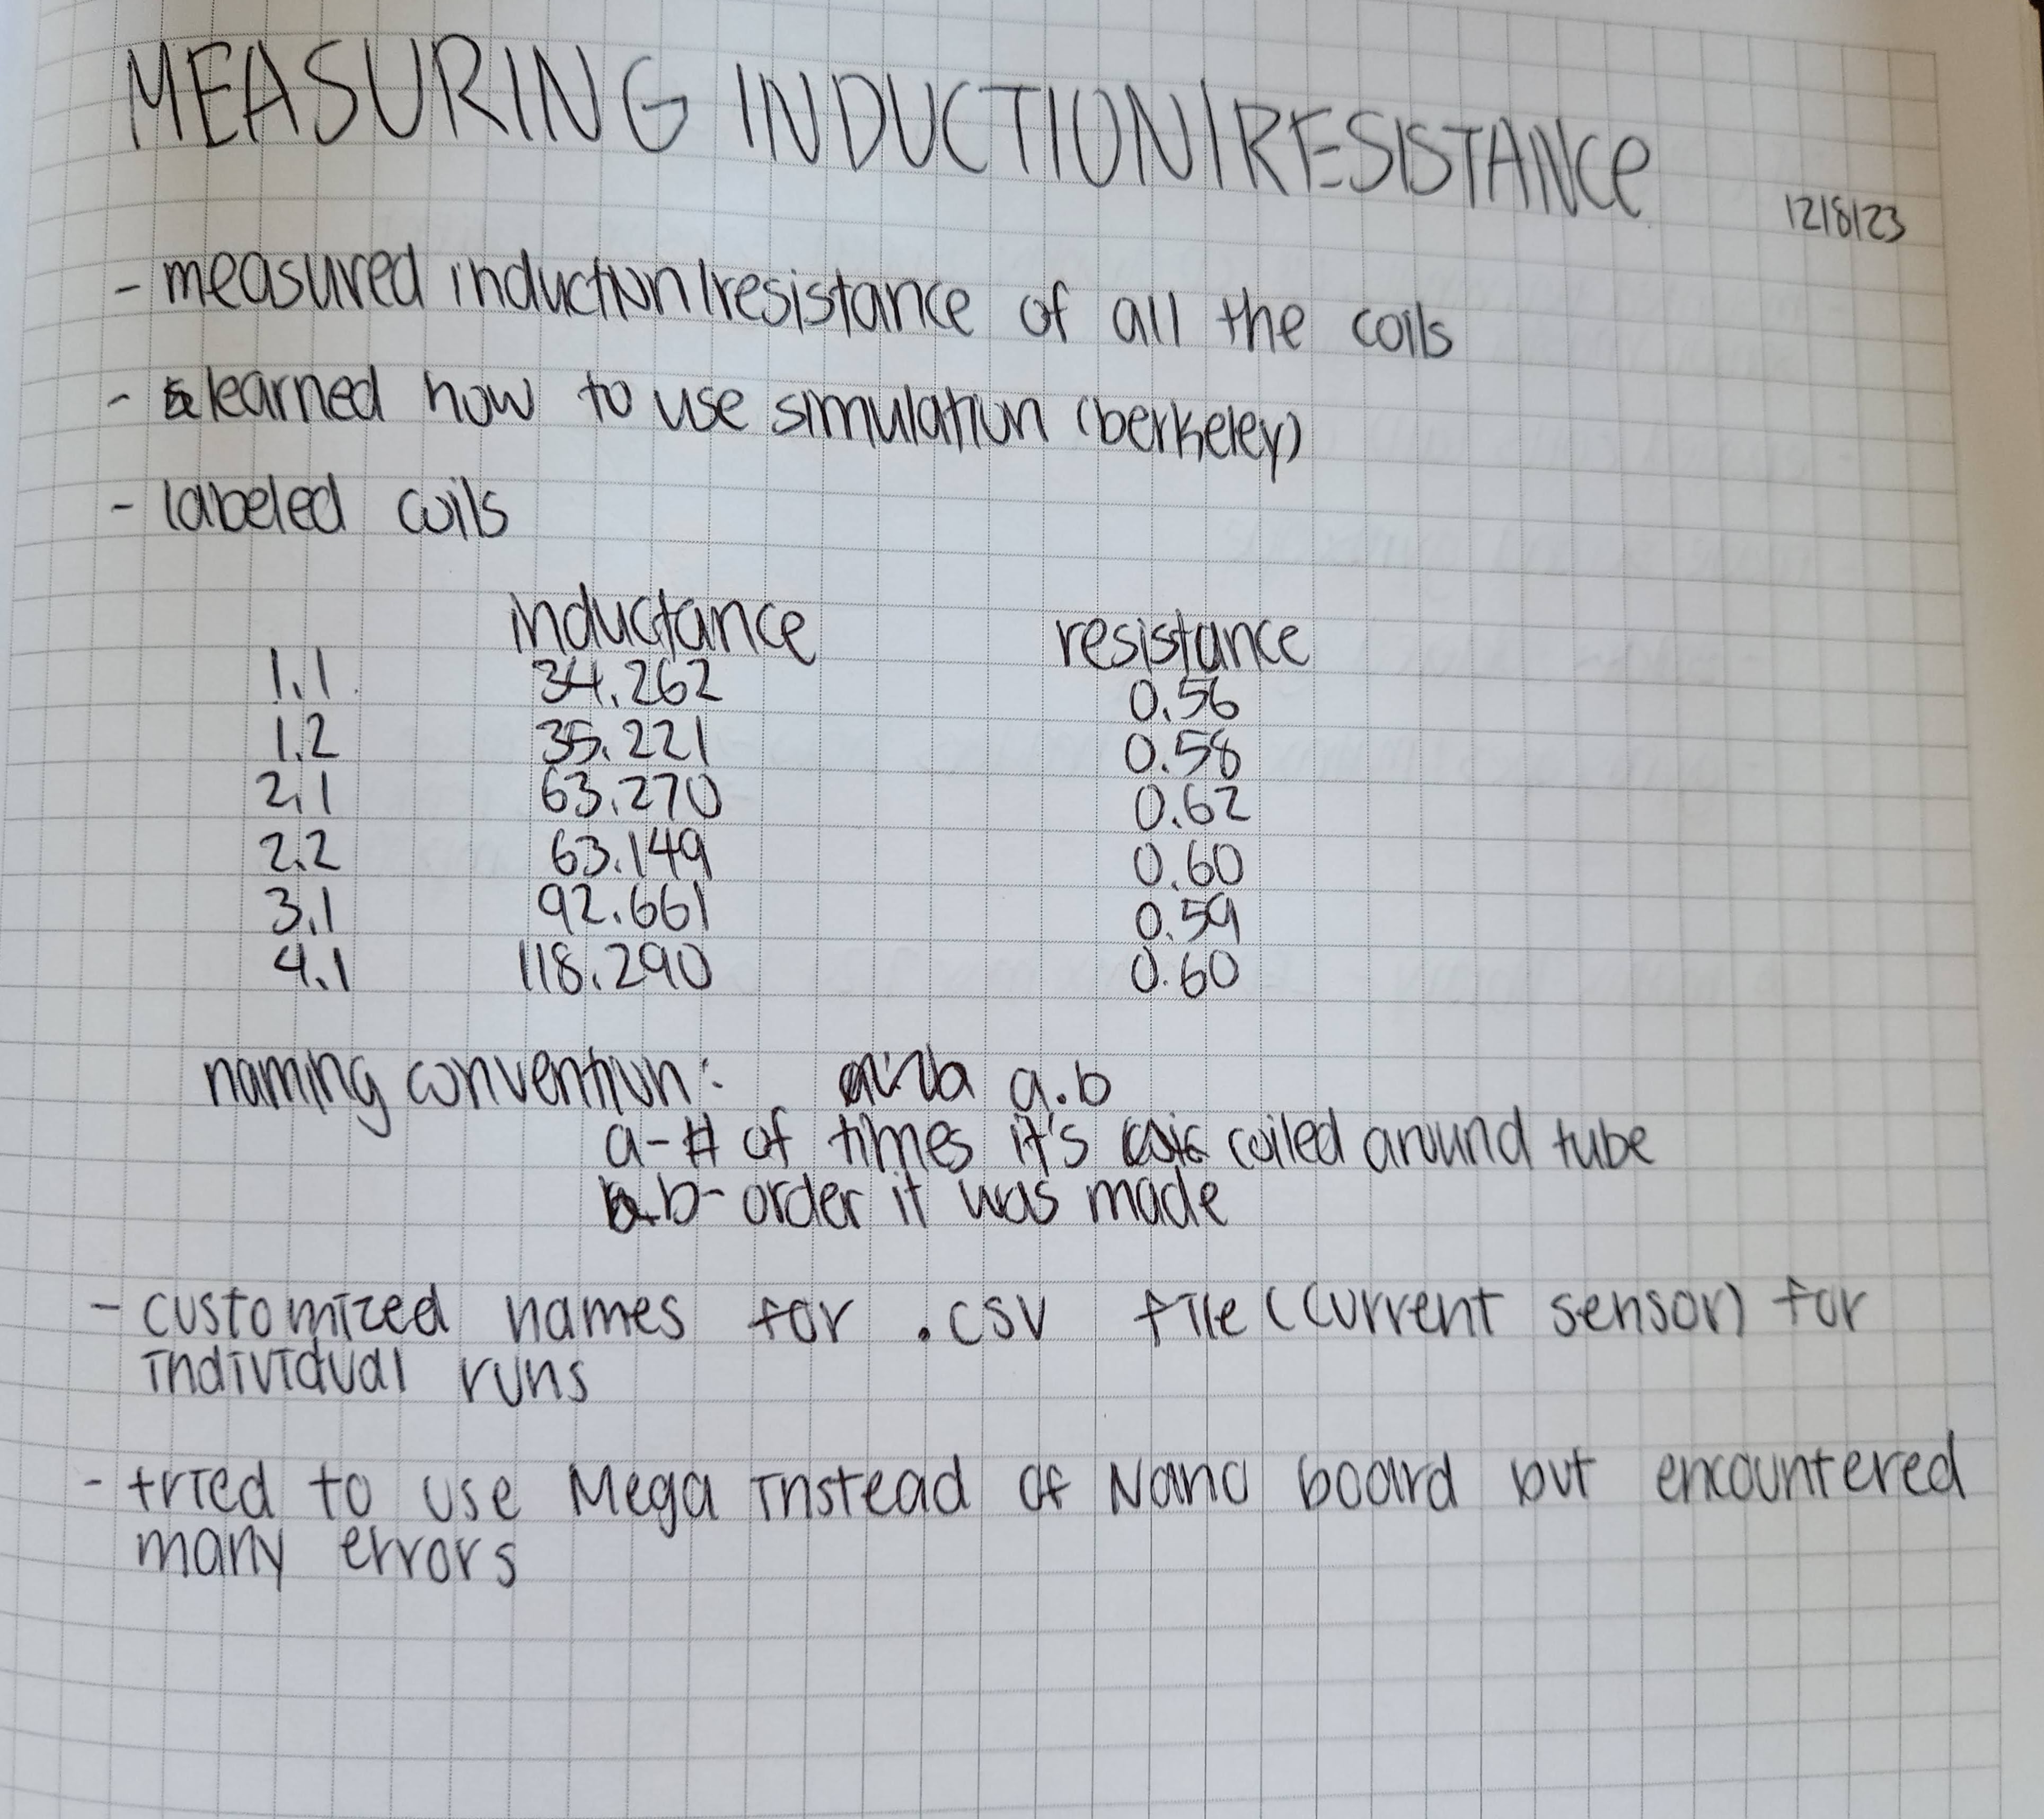 MEASURING INDUCTION/RESISTANCE
12/8/23
- measured induction/resistance of all the coils
- learned how to use simulation (berkeley)
- labeled coils
inductance resistance
1.1 34.262 0.56
1.2 35.221 0.58
2.1 63.270 0.62
2.2 63.149 0.60
3.1 92.661 0.59
4.1 118.290 0.60
naming convention: a.b
a - # of times it's coiled around tube
b - order it was made
- customized names for .csv file (current sensor) for
individual runs
- tried to use Mega instead of Nano board but encountered
many errors